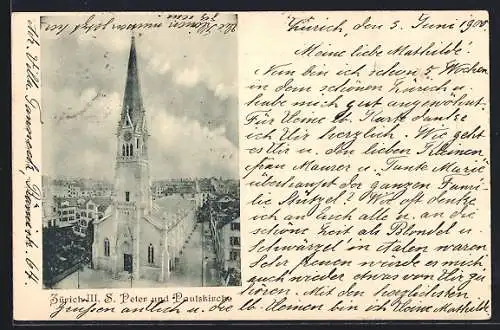 Zürich, den 5. Juni 1900
Meine liebe Mathilde!
Nun bin ich schon 5 Wochen
in dem schönen Zürich u
habe mich gut angewöhnt.
Für Deine lb. Karte danke
ich Dir herzlich. Wie geht
es Dir u. den lieben Kleinen
Frau Maurer u. Tante Marie
überhaupt der ganzen Fami-
lie Stützel? Wie oft denke
ich an Euch alle u. an die
schöne Zeit als Blondel u
Schwärzel in Aalen waren
Sehr freuen würde es mich
auch wieder etwas von Dir zu
hören. Mit den herzlichsten
Grüssen an Dich u. die lb. Kleinen bin ich Deine Mathilde
Zürich III. S. Peter und Paulskirche